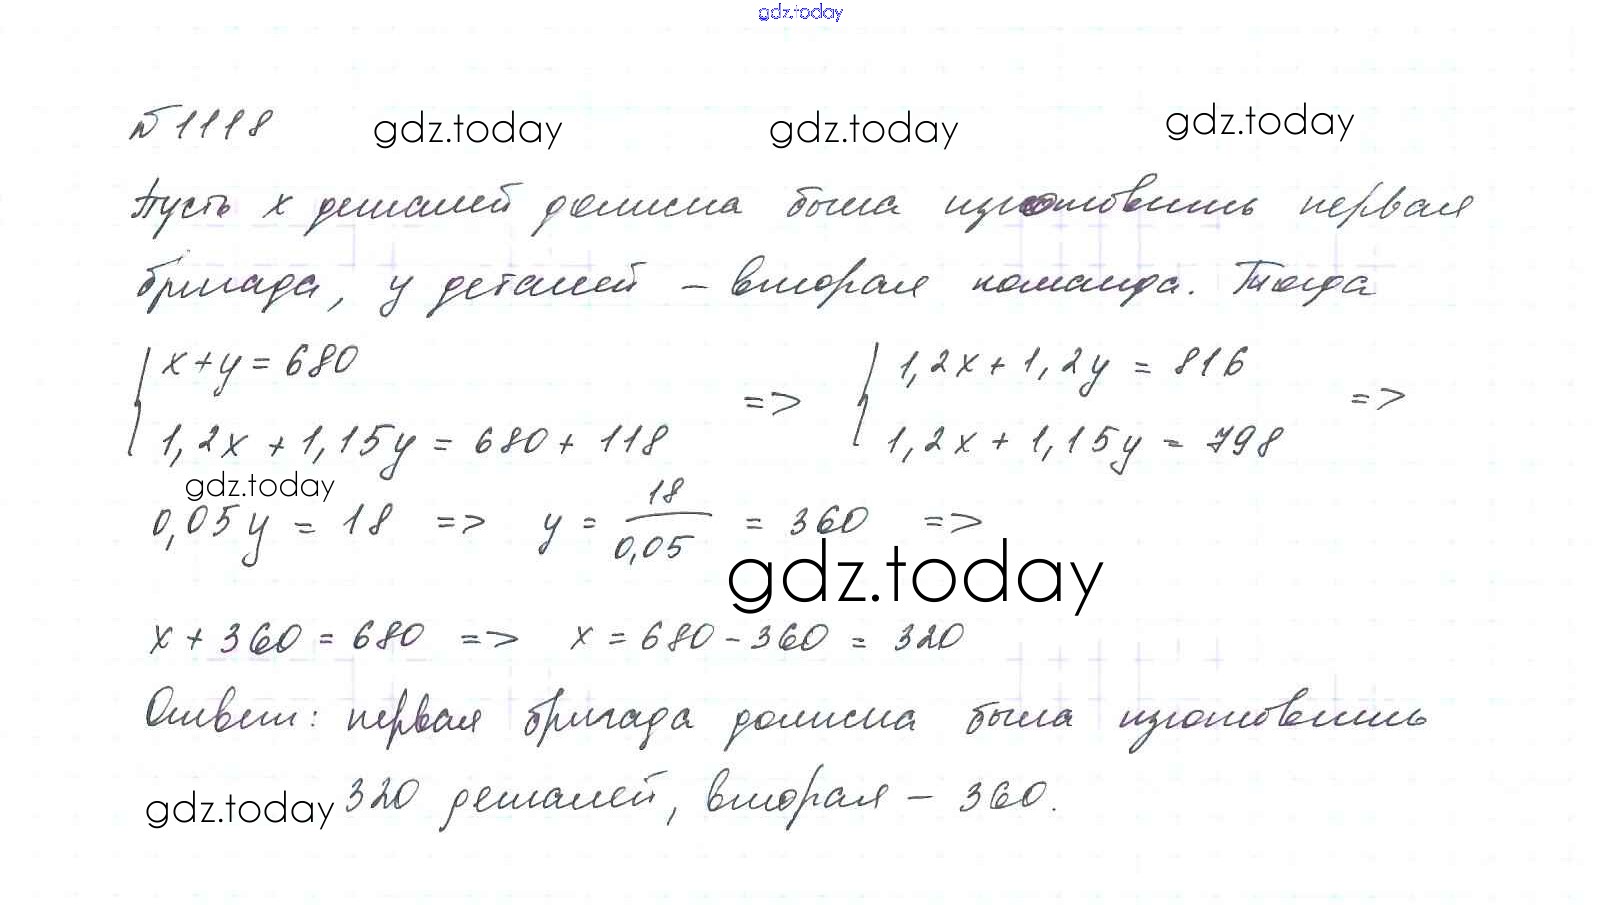 gdz.today
№ 1118 gdz.today gdz.today gdz.today
Пусть x деталей должна была изготовить первая
бригада, y деталей – вторая команда. Тогда
{ x + y = 680 => { 1,2x + 1,2y = 816 =>
1,2x + 1,15y = 680 + 118 1,2x + 1,15y = 798
gdz.today
0,05y = 18 => y = 18/0,05 = 360 =>
gdz.today
x + 360 = 680 => x = 680 - 360 = 320
Ответ: первая бригада должна была изготовить
gdz.today 320 деталей, вторая – 360.